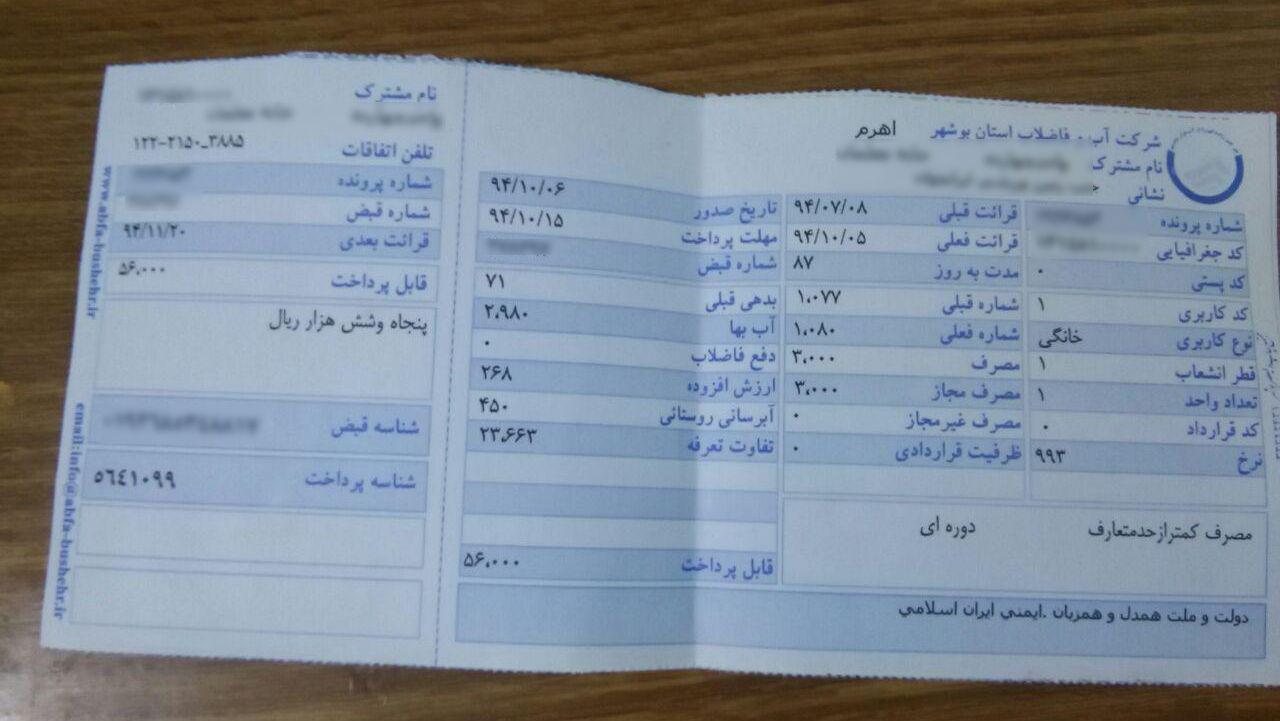 شرکت آب - فاضلاب استان بوشهر اهرم
نام مشترک
نشانی
شماره پرونده
کد جغرافیایی
کد پستی ۰
کد کاربری ۱
نوع کاربری خانگی
قطر انشعاب ۱
تعداد واحد ۱
کد قرارداد ۰
نرخ ۹۹۳
قرائت قبلی ۹۴/۰۷/۰۸
قرائت فعلی ۹۴/۱۰/۰۵
مدت به روز ۸۷
شماره قبلی ۱،۰۷۷
شماره فعلی ۱،۰۸۰
مصرف ۳،۰۰۰
مصرف مجاز ۳،۰۰۰
مصرف غیرمجاز ۰
ظرفیت قراردادی ۰
تاریخ صدور ۹۴/۱۰/۰۶
مهلت پرداخت ۹۴/۱۰/۱۵
شماره قبض
بدهی قبلی ۷۱
آب بها ۲،۹۸۰
دفع فاضلاب ۰
ارزش افزوده ۲۶۸
آبرسانی روستائی ۴۵۰
تفاوت تعرفه ۲۳،۶۶۳
قابل پرداخت ۵۶،۰۰۰
مصرف کمترازحدمتعارف دوره ای
دولت و ملت همدل و همزبان .ایمني ایران اسلامي
نام مشترک
تلفن اتفاقات ۱۲۲-۲۱۵۰_۳۸۸۵
شماره پرونده
شماره قبض
قرائت بعدی ۹۴/۱۱/۲۰
قابل پرداخت ۵۶،۰۰۰
پنجاه وشش هزار ریال
شناسه قبض
شناسه پرداخت ٥٦٤١٠٩٩
www.abfa-bushehr.ir
email:info@abfa-bushehr.ir